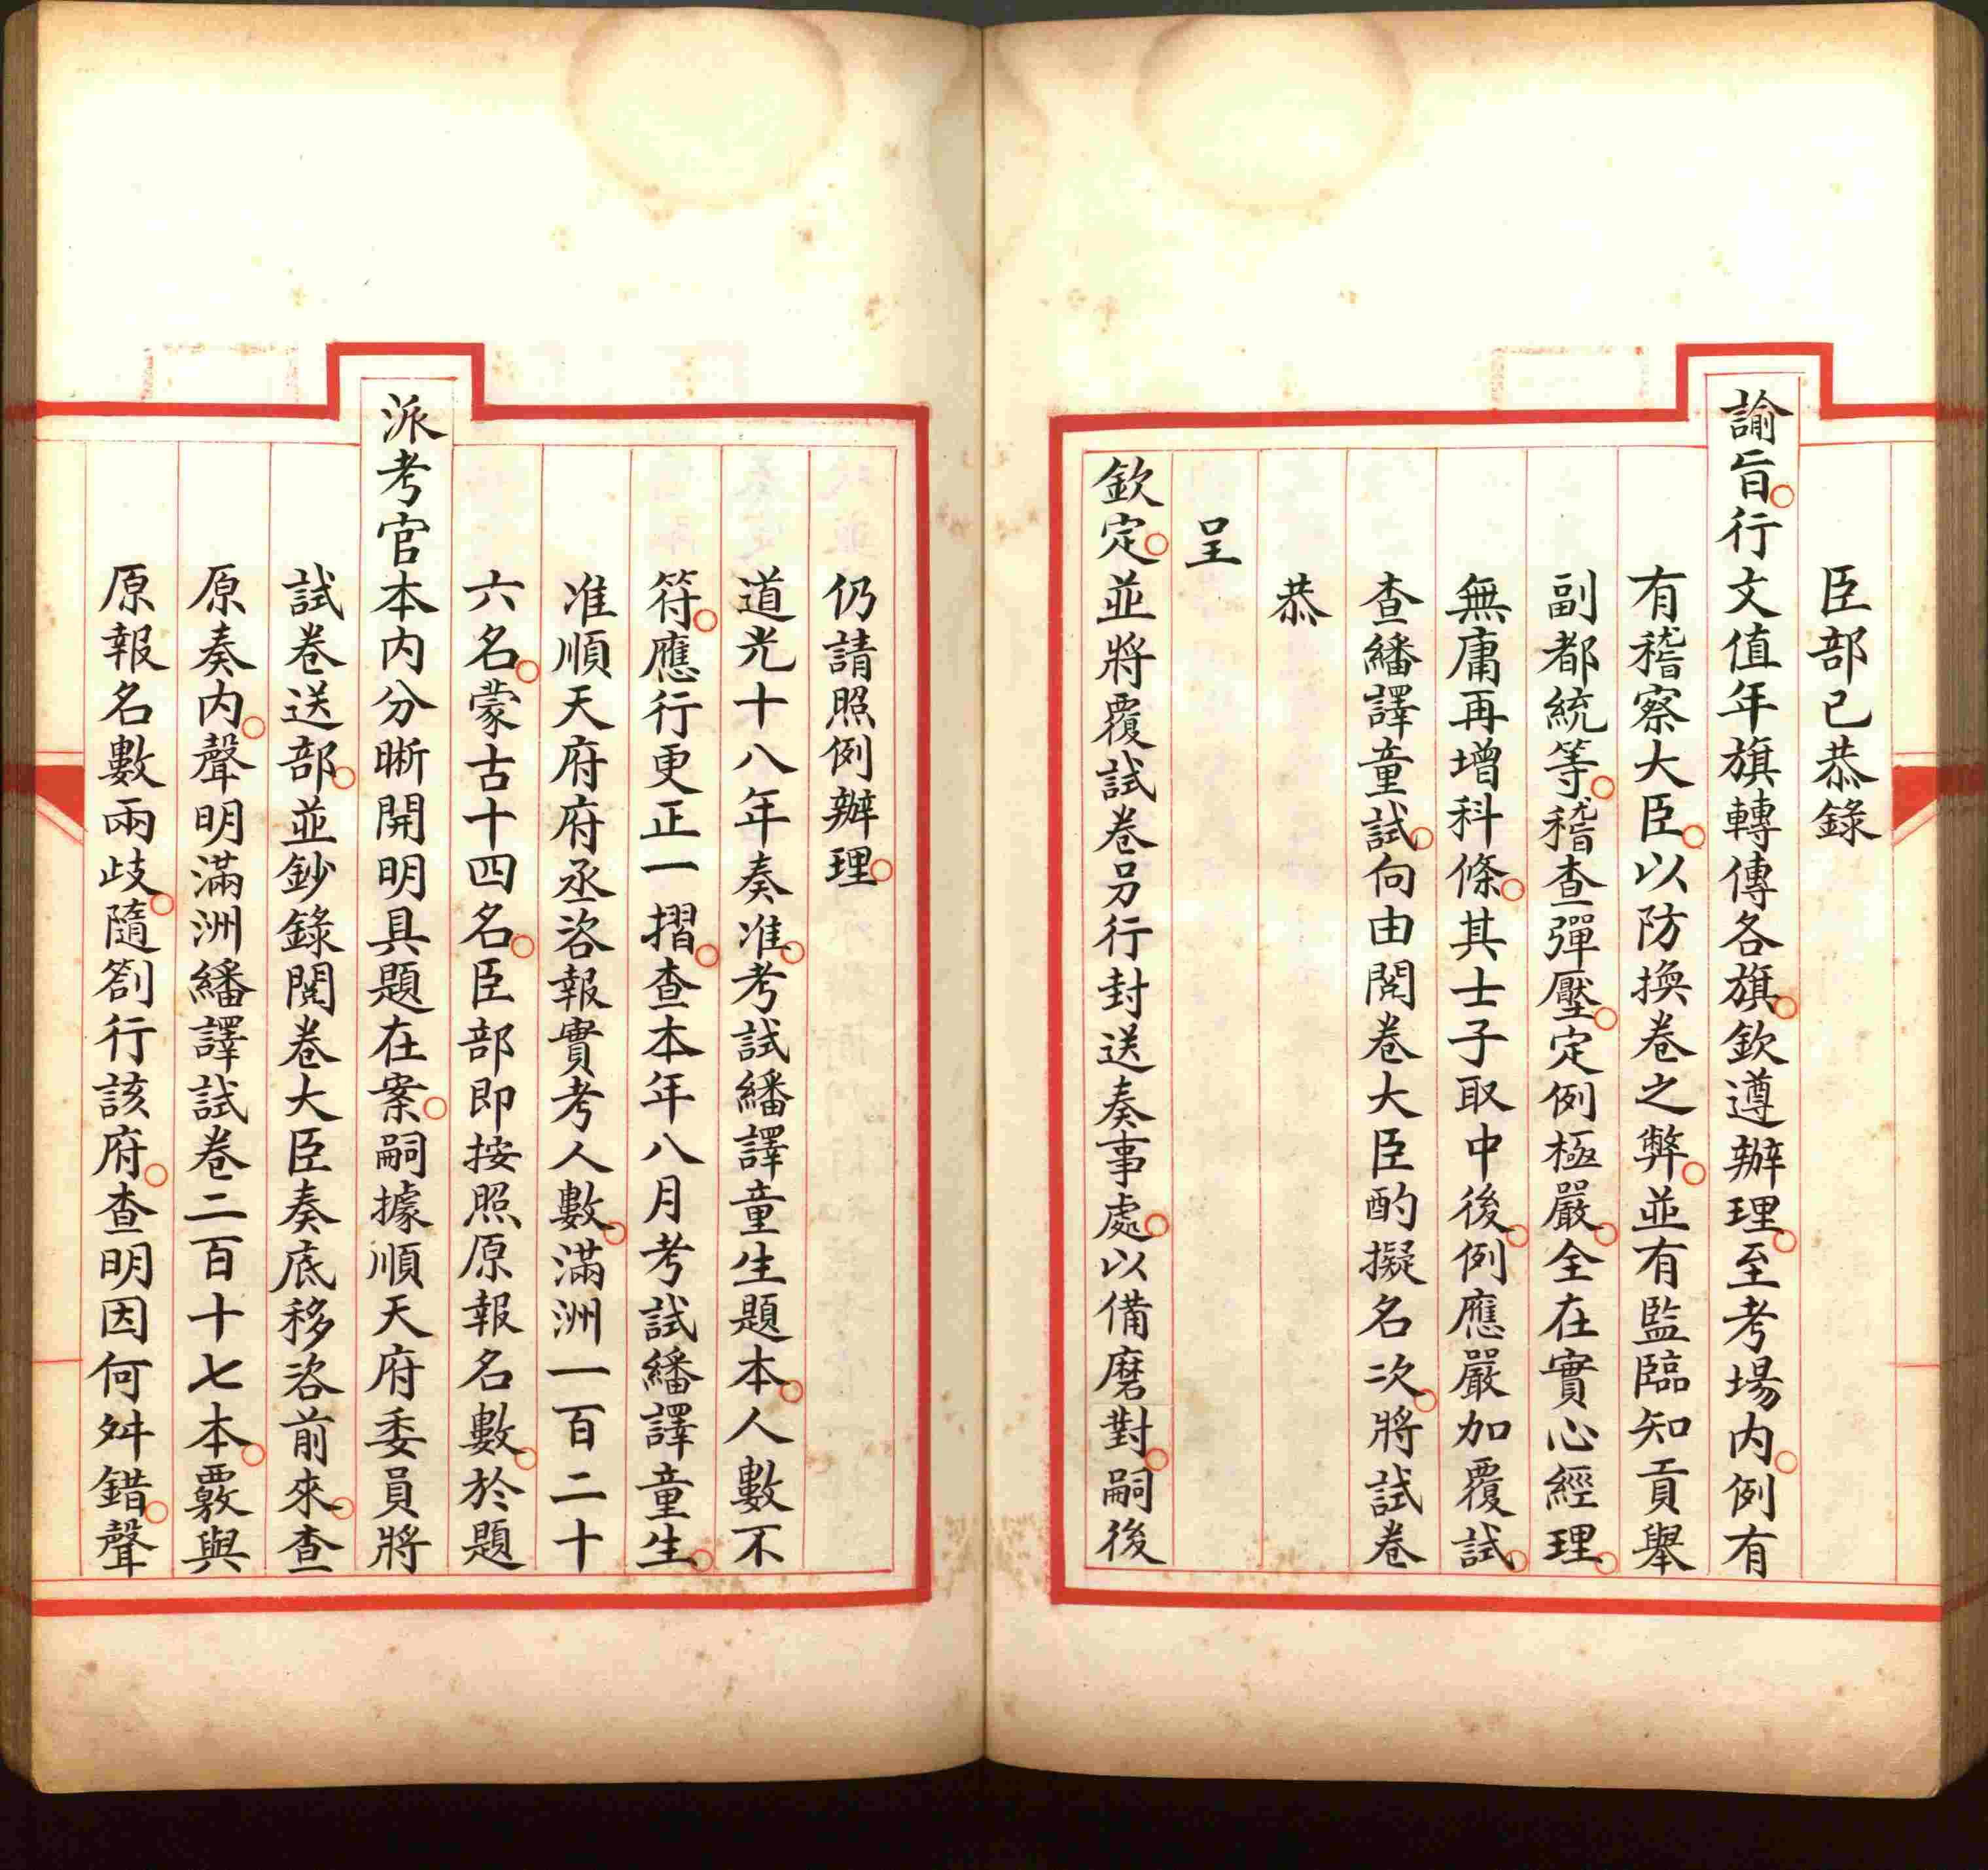 臣部已恭錄
諭旨○行文值年旗轉傳各旗○欽遵辦理○至考場內○例有
有稽察大臣○以防換卷之弊○並有監臨知貢舉
副都統等○稽查彈壓○定例極嚴○全在實心經理○
無庸再增科條○其士子取中後○例應嚴加覆試○
查繙譯童試○向由閱卷大臣酌擬名次○將試卷
恭
呈
欽定○並將覆試卷另行封送奏事處○以備磨對○嗣後
仍請照例辦理○
道光十八年奏准○考試繙譯童生題本○人數不
符○應行更正一摺○查本年八月考試繙譯童生○
准順天府府丞咨報實考人數○滿洲一百二十
六名○蒙古十四名○臣部即按照原報名數○於題
派考官本內分晰開明具題在案○嗣據順天府委員將
試卷送部○並鈔錄閱卷大臣奏底移咨前來○查
原奏內○聲明滿洲繙譯試卷二百十七本○覈與
原報名數兩歧○隨劄行該府○查明因何舛錯○聲